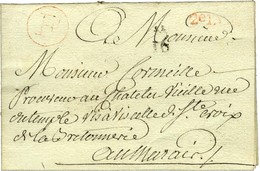 B
2e L.
A Monsieur
Monsieur Corneille
Procureur au Chatelet Vieille rue
du temple Vis a Vis celle de Ste Croix
de la Bretonnerie
au Marais